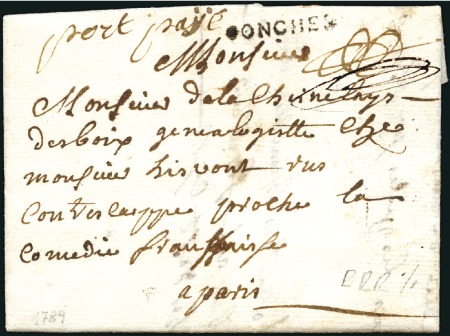 port payé
CONCHES
Monsieur
Monsieur de la Chenelays
desboix genealogiste Che
monsieur hisvont rue
Contrescarppe proche la
Comedie franssaise
a paris
RRR
1789